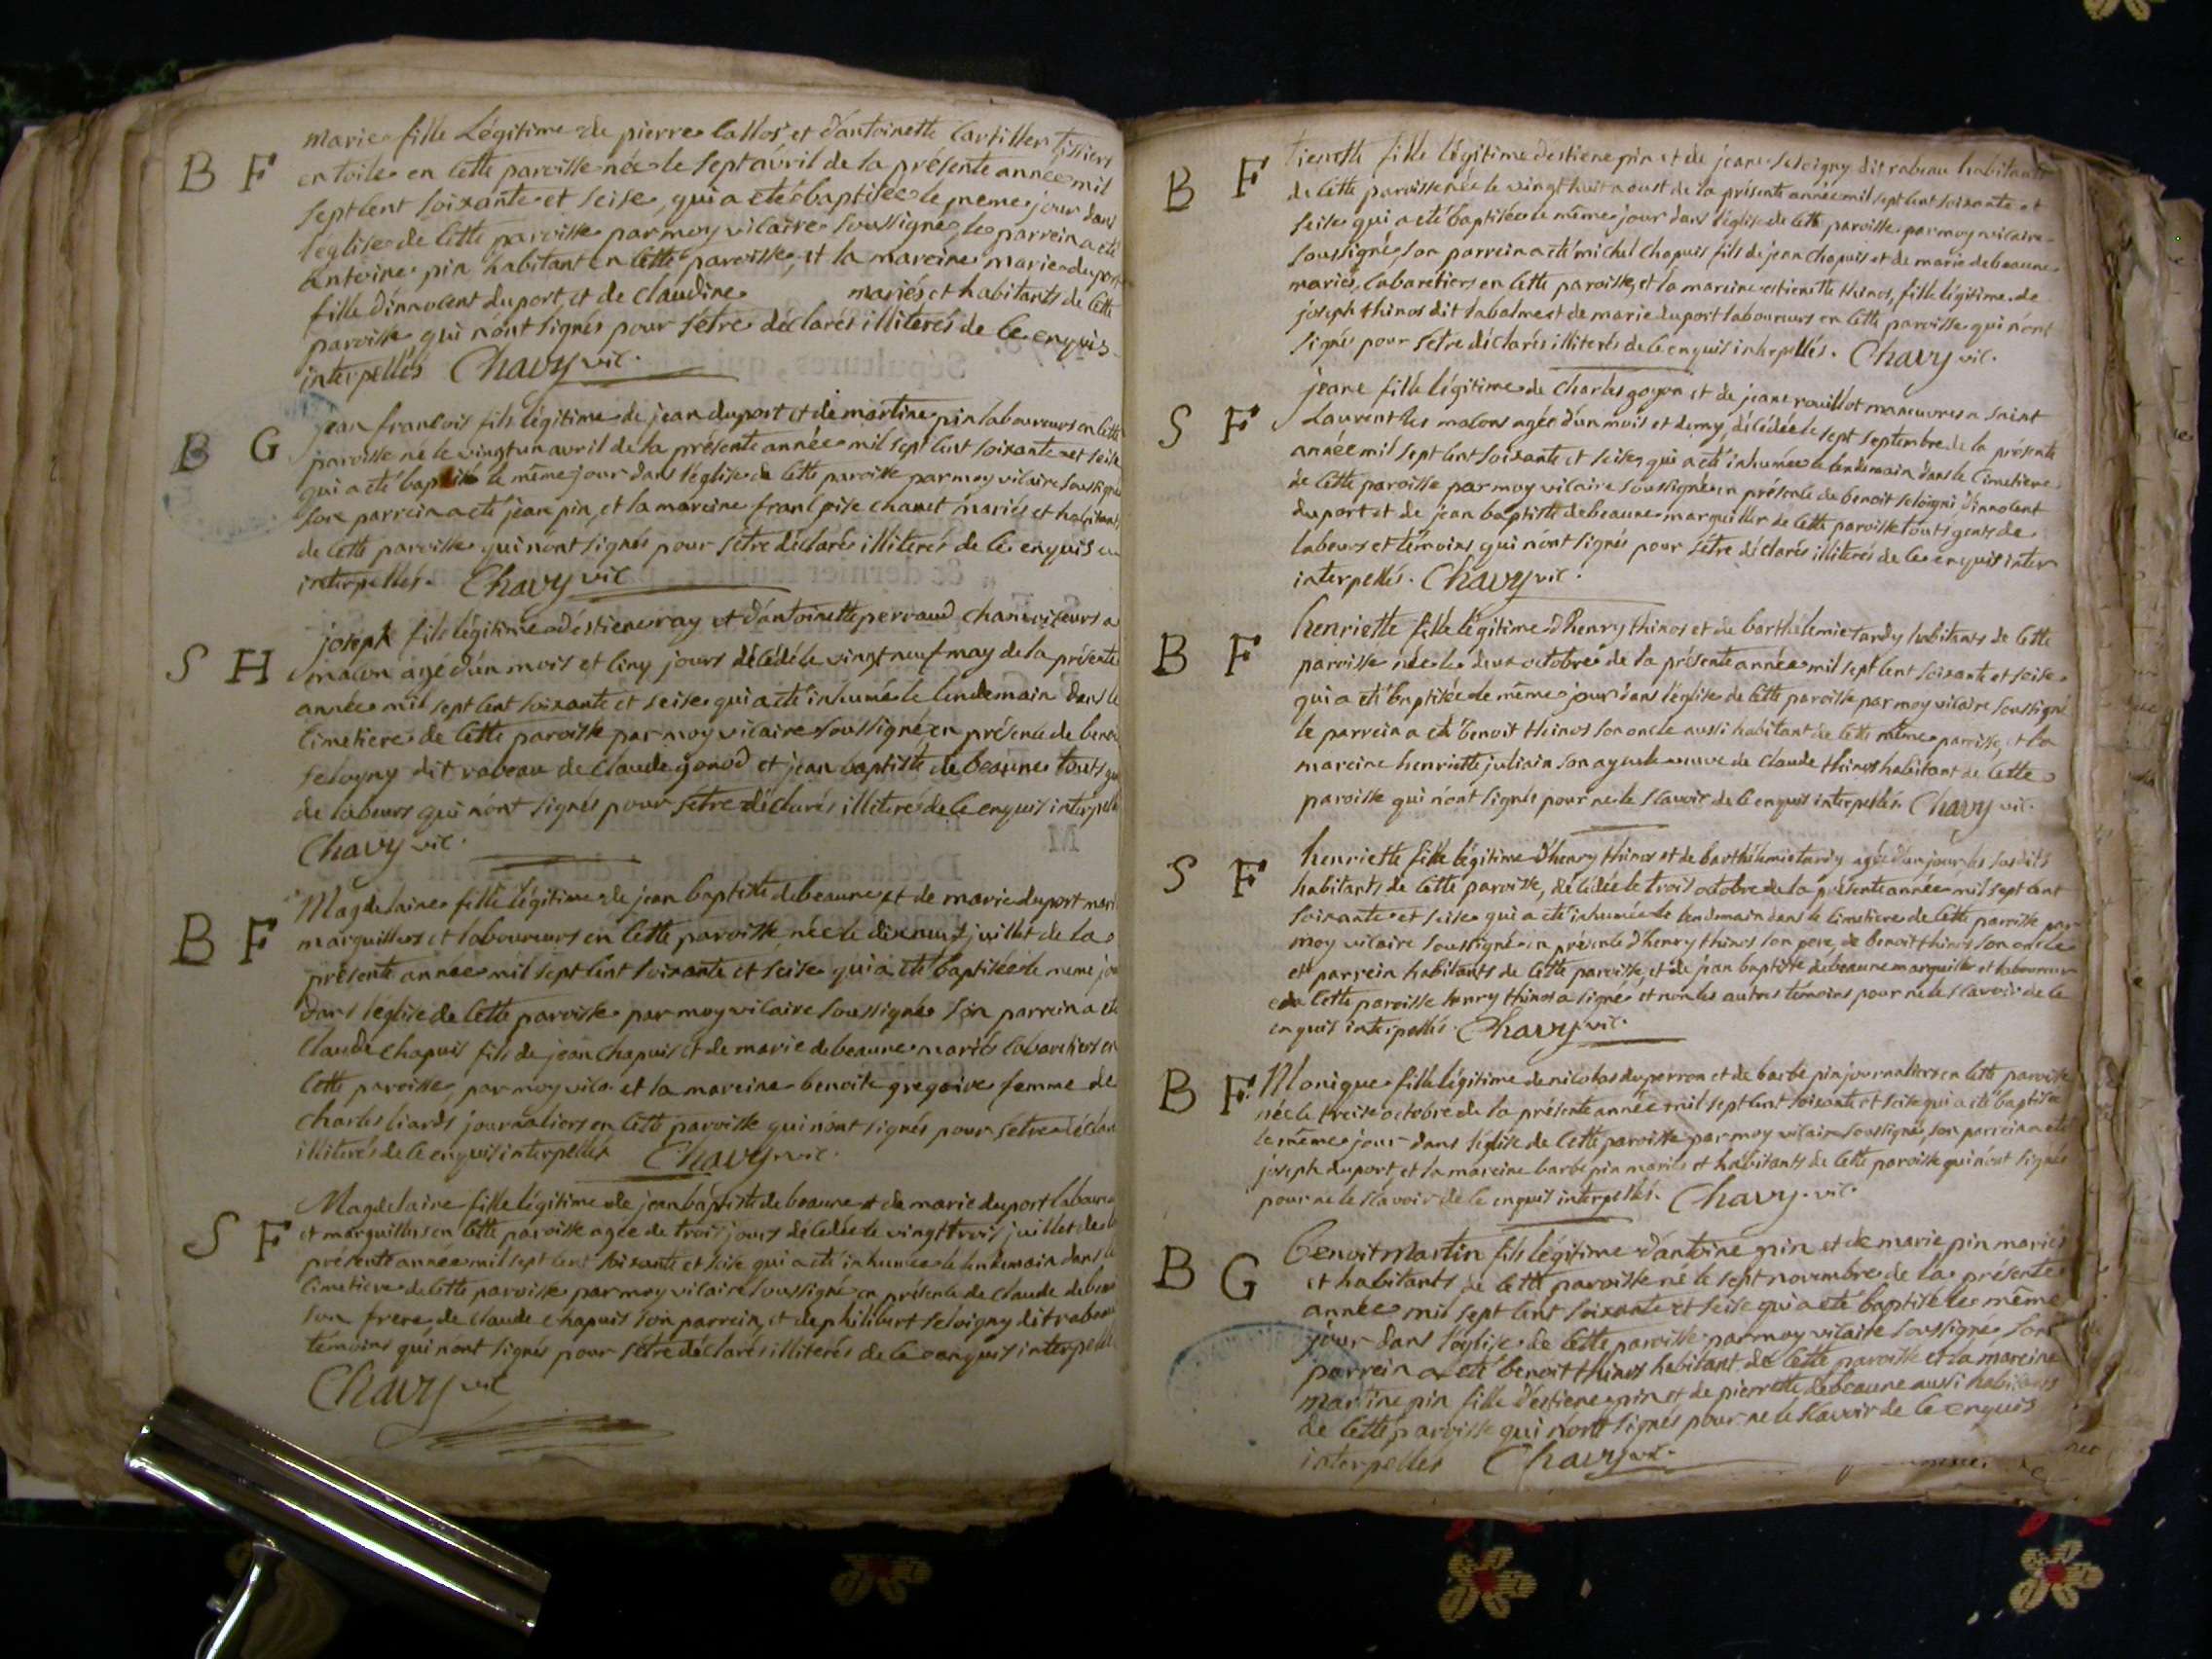 B F
marie fille Légitime de pierre callos et d'antoinette cartillier tissiers
en toile en cette paroisse née le sept avril de la présente année mil
sept cent soixante et seise, qui a eté baptisée le meme jour dans
l'eglise de cette paroisse par moy vicaire soussigné, le parrein a eté
antoine pin habitant en cette paroisse, et la mareine marie duport
fille d'innocent duport, et de claudine mariés et habitants de cette
paroisse qui n'ont signés pour s'etre déclarés illiterés de ce enquis
interpellés Chavy vic.
B G
jean francois fils légitime de jean duport et de martine pin laboureurs en cette
paroisse né le vingt un avril de la présente année mil sept cent soixante et seise
qui a eté baptisé le même jour dans l'eglise de cette paroisse par moy vicaire soussigné
son parrein a eté jean pin, et la mareine francoise chanet mariés et habitants
de cette paroisse qui n'ont signés pour s'etre déclarés illiterés de ce enquis
interpellés. Chavy vic
S H
joseph fils légitime d'estiene ray et d'antoinette perraud chanvriseurs a
macon agé d'un mois et cinq jours décédé le vingt neuf may de la présente
année mil sept cent soixante et seise qui a eté inhumé le lendemain dans le
cimetiere de cette paroisse par moy vicaire soussigné en présence de benoit
seloigny dit rabeau de claude gonod et jean baptiste debeaune touts
de labeurs qui n'ont signés pour s'etre déclarés illiterés de ce enquis interpellés
Chavy vic.
B F
Magdelaine fille légitime de jean baptiste debeaune et de marie duport
marguilliers et laboureurs en cette paroisse née le dixneuf juillet de la
présente année mil sept cent soixante et seise qui a eté baptisée le meme jour
dans l'église de cette paroisse par moy vicaire soussigné son parrein a eté
claude chapuis fils de jean chapuis et de marie debeaune mariés cabaretiers en
cette paroisse, par moy vic. et la mareine benoite gregoire femme de
charles liards journaliers en cette paroisse qui n'ont signés pour s'etre
illiterés de ce enquis interpellés Chavy vic.
S F
Magdelaine fille légitime de jean baptiste debeaune et de marie duport
et marguilliers en cette paroisse agée de trois jours décédée le vingt trois juillet de la
présente année mil sept cent soixante et seise qui a eté inhumée le lendemain dans le
cimetiere de cette paroisse par moy vicaire soussigné en présence de claude
son frere, de claude chapuis son parrein, et de philibert seloigny dit rabeau
témoins qui n'ont signés pour s'etre déclarés illiterés de ce enquis
Chavy vic
B F
tienette fille légitime d'estiene pin et de jeane seloigny dit rabeau habitants
de cette paroisse née le vingt huit aoust de la présente année mil sept cent soixante et
seise qui a eté baptisée le même jour dans l'église de cette paroisse par moy vicaire
soussigné son parrein a eté michel chapuis fils de jean chapuis et de marie debeaune
mariés, cabaretiers en cette paroisse, et la mareine estienette thinos, fille légitime de
joseph thinos dit labalme et de marie duport laboureurs en cette paroisse qui n'ont
signés pour s'etre déclarés illiterés de ce enquis interpellés. Chavy vic.
S F
jeane fille légitime de charles goyon et de jeane rouillot maneuvres a saint
Laurent les macons agée d'un mois et demy, décédée le sept septembre de la présente
année mil sept cent soixante et seise qui a eté inhumée le lendemain dans le cimetiere
de cette paroisse par moy vicaire soussigné en présence de benoit seloigni d'innocent
duport et de jean baptiste debeaune marguillier de cette paroisse touts gents de
labeurs et témoins qui n'ont signés pour s'etre déclarés illiterés de ce enquis inter
interpellés. Chavy vic.
B F
henriette fille légitime d'henry thinos et de barthelemie tardy habitants de cette
paroisse née le deux octobre de la présente année mil sept cent soixante et seise
qui a eté baptisée le même jour dans l'église de cette paroisse par moy vicaire soussigné
le parrein a eté benoit thinos son oncle aussi habitant de cette même paroisse, et la
mareine henriette juliain son ayeule veuve de claude thinos habitant de cette
paroisse qui n'ont signés pour ne le scavoir de ce enquis interpellés. Chavy vic.
S F
henriette fille légitime d'henry thinos et de barthélemie tardy agée d'un jour les susdits
habitants de cette paroisse, décédée le trois octobre de la présente année mil sept cent
soixante et seise qui a eté inhumée le lendemain dans le cimetiere de cette paroisse par
moy vicaire soussigné en présence d'henry thinos son pere, de benoit thinos son oncle
et parrein habitants de cette paroisse, et de jean baptiste debeaune marguillier et laboureur
cette paroisse henry thinos a signé et non les autres témoins pour ne le scavoir de ce
enquis interpellés. Chavy vic.
B F.
Monique fille légitime de nicolas duperron et de barbe pin journaliers en cette paroisse
née le treise octobre de la présente année mil sept cent soixante et seise qui a eté baptisée
le même jour dans l'église de cette paroisse par moy vicaire soussigné, son parrein a eté
joseph duport, et la mareine barbe pin mariés et habitants de cette paroisse qui n'ont signés
pour ne le scavoir de ce enquis interpellés. Chavy. vic.
B G
benoit martin fils légitime d'antoine pin et de marie pin mariés
et habitants de cette paroisse né le sept novembre de la présente
année mil sept cent soixante et seise qui a eté baptisé le même
jour dans l'église de cette paroisse par moy vicaire soussigné son
parrein a eté benoit thinos habitant de cette paroisse et la mareine
martine pin fille d'estiene pin et de pierrette debeaune aussi habitants
de cette paroisse qui n'ont signés pour ne le scavoir de ce enquis
interpellés Chavy vic.